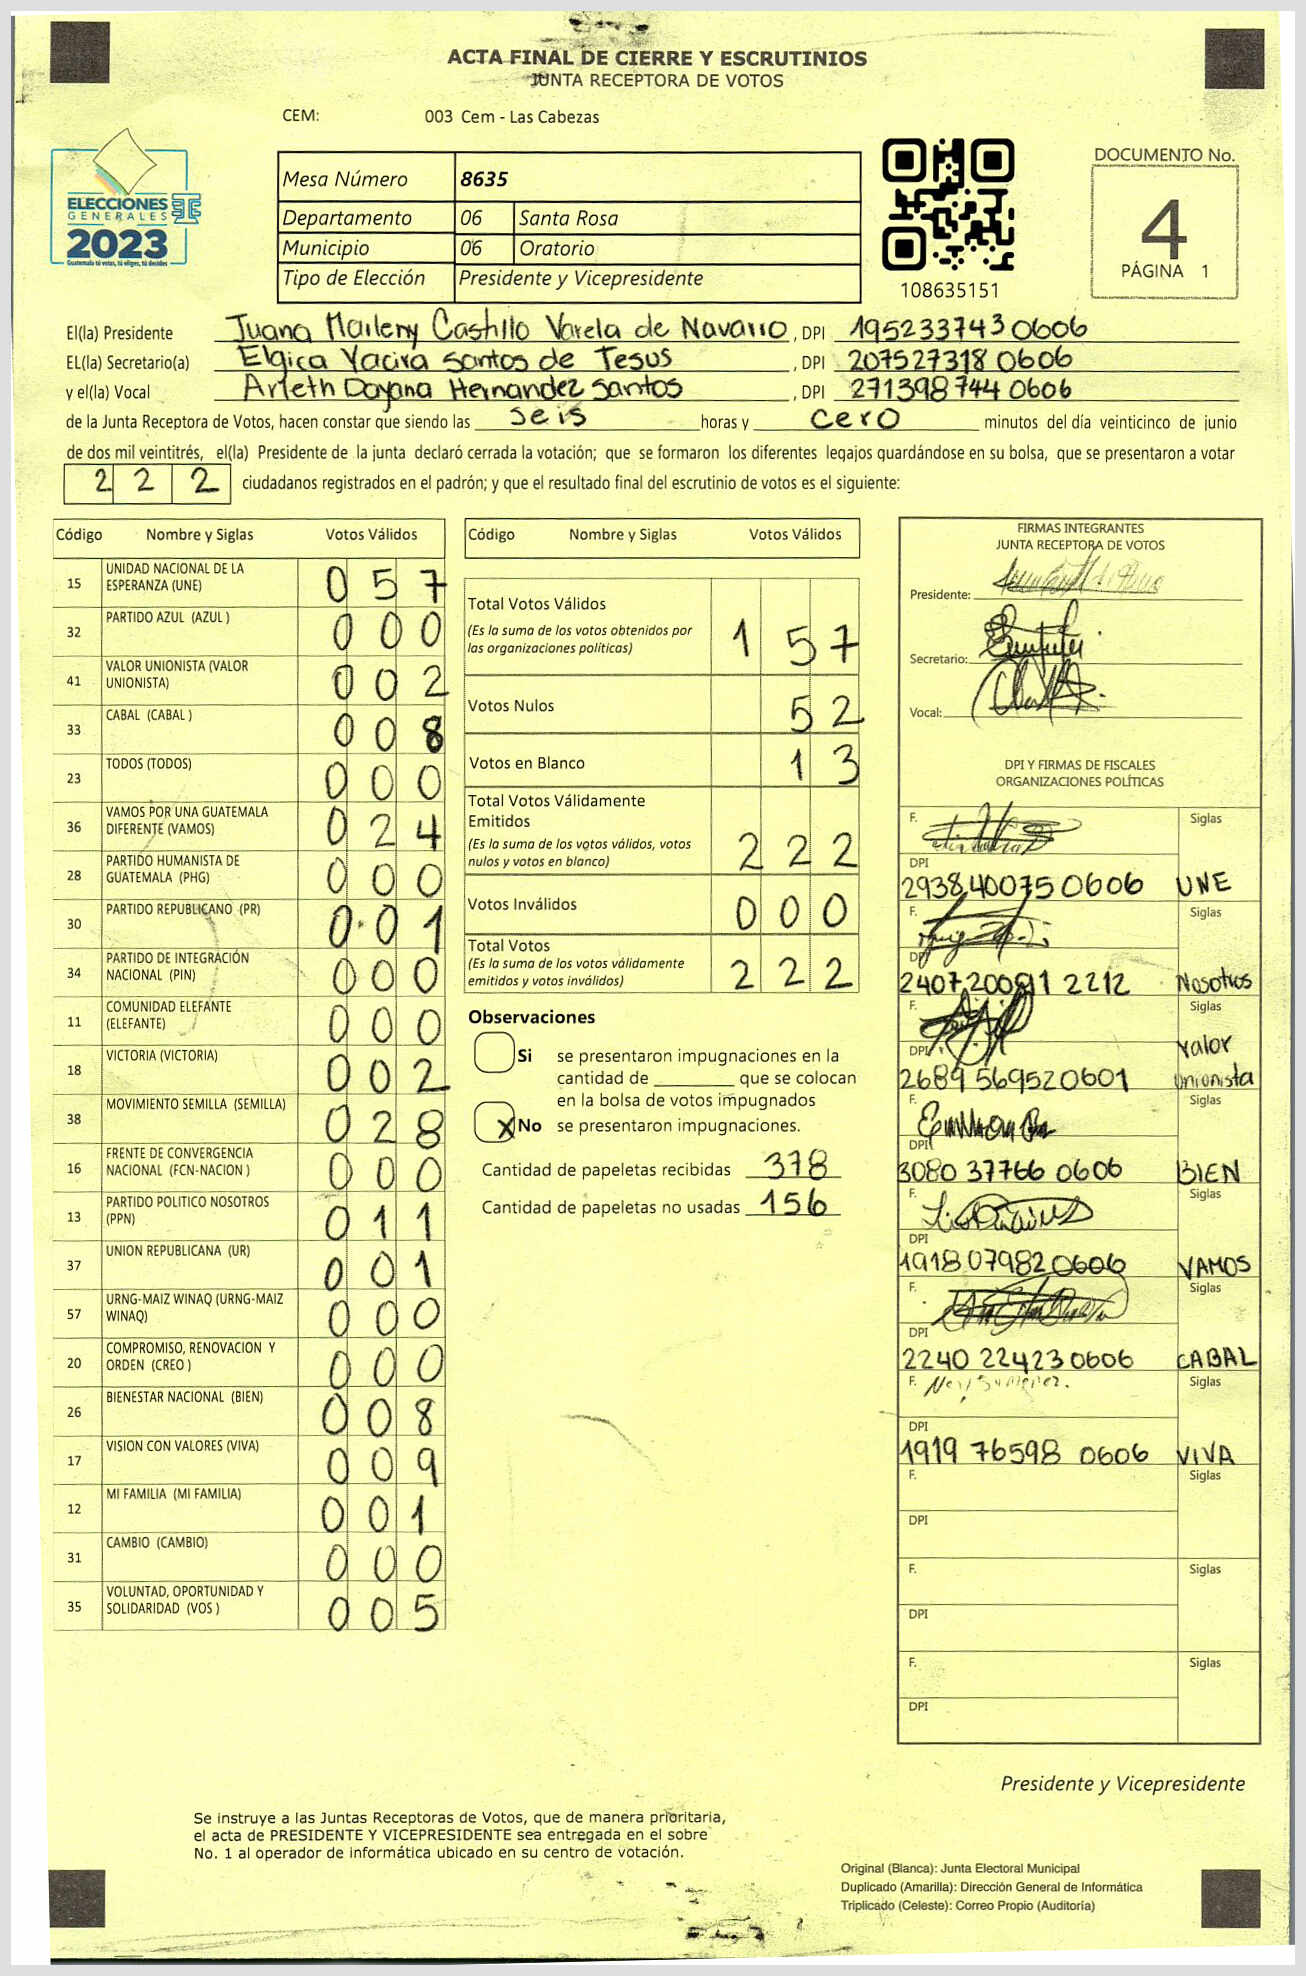 ACTA FINAL DE CIERRE Y ESCRUTINIOS
JUNTA RECEPTORA DE VOTOS
CEM: 003 Cem - Las Cabezas
ELECCIONES
GENERALES
2023
Guatemala tú votas, tú eliges, tú decides
Mesa Número 8635
Departamento 06 Santa Rosa
Municipio 06 Oratorio
Tipo de Elección Presidente y Vicepresidente
108635151
DOCUMENTO No.
4
PÁGINA 1
El(la) Presidente Juana Maileny Castillo Varela de Navarro, DPI 195233743 0606
EL(la) Secretario(a) Elgica Yacira Santos de Jesus, DPI 207527318 0606
y el(la) Vocal Arleth Dayana Hernandez Santos, DPI 271398744 0606
de la Junta Receptora de Votos, hacen constar que siendo las seis horas y cero minutos del día veinticinco de junio
de dos mil veintitrés, el(la) Presidente de la junta declaró cerrada la votación; que se formaron los diferentes legajos guardándose en su bolsa, que se presentaron a votar
2 2 2 ciudadanos registrados en el padrón; y que el resultado final del escrutinio de votos es el siguiente:
Código Nombre y Siglas Votos Válidos
15 UNIDAD NACIONAL DE LA
ESPERANZA (UNE) 0 5 7
32 PARTIDO AZUL (AZUL ) 0 0 0
41 VALOR UNIONISTA (VALOR
UNIONISTA) 0 0 2
33 CABAL (CABAL ) 0 0 8
23 TODOS (TODOS) 0 0 0
36 VAMOS POR UNA GUATEMALA
DIFERENTE (VAMOS) 0 2 4
28 PARTIDO HUMANISTA DE
GUATEMALA (PHG) 0 0 0
30 PARTIDO REPUBLICANO (PR) 0 0 1
34 PARTIDO DE INTEGRACIÓN
NACIONAL (PIN) 0 0 0
11 COMUNIDAD ELEFANTE
(ELEFANTE) 0 0 0
18 VICTORIA (VICTORIA) 0 0 2
38 MOVIMIENTO SEMILLA (SEMILLA) 0 2 8
16 FRENTE DE CONVERGENCIA
NACIONAL (FCN-NACION ) 0 0 0
13 PARTIDO POLITICO NOSOTROS
(PPN) 0 1 1
37 UNION REPUBLICANA (UR) 0 0 1
57 URNG-MAIZ WINAQ (URNG-MAIZ
WINAQ) 0 0 0
20 COMPROMISO, RENOVACION Y
ORDEN (CREO ) 0 0 0
26 BIENESTAR NACIONAL (BIEN) 0 0 8
17 VISION CON VALORES (VIVA) 0 0 9
12 MI FAMILIA (MI FAMILIA) 0 0 1
31 CAMBIO (CAMBIO) 0 0 0
35 VOLUNTAD, OPORTUNIDAD Y
SOLIDARIDAD (VOS ) 0 0 5
Código Nombre y Siglas Votos Válidos
Total Votos Válidos
(Es la suma de los votos obtenidos por
las organizaciones políticas) 1 5 7
Votos Nulos 5 2
Votos en Blanco 1 3
Total Votos Válidamente
Emitidos
(Es la suma de los votos válidos, votos
nulos y votos en blanco) 2 2 2
Votos Inválidos 0 0 0
Total Votos
(Es la suma de los votos válidamente
emitidos y votos inválidos) 2 2 2
Observaciones
Si se presentaron impugnaciones en la
cantidad de ________ que se colocan
en la bolsa de votos impugnados
X No se presentaron impugnaciones.
Cantidad de papeletas recibidas 378
Cantidad de papeletas no usadas 156
FIRMAS INTEGRANTES
JUNTA RECEPTORA DE VOTOS
Presidente:
Secretario:
Vocal:
DPI Y FIRMAS DE FISCALES
ORGANIZACIONES POLÍTICAS
F. Siglas
DPI
2938 40075 0606 UNE
F. Siglas
DPI
2407 20091 2212 Nosotros
F. Siglas
DPI Valor
2689 56952 0601 Unionista
F. Siglas
DPI
3080 37766 0606 BIEN
F. Siglas
DPI
1918 07982 0606 VAMOS
F. Siglas
DPI
2240 22423 0606 CABAL
F. Siglas
DPI
1919 76598 0606 VIVA
F. Siglas
DPI
F. Siglas
DPI
F. Siglas
DPI
Presidente y Vicepresidente
Se instruye a las Juntas Receptoras de Votos, que de manera prioritaria,
el acta de PRESIDENTE Y VICEPRESIDENTE sea entregada en el sobre
No. 1 al operador de informática ubicado en su centro de votación.
Original (Blanca): Junta Electoral Municipal
Duplicado (Amarilla): Dirección General de Informática
Triplicado (Celeste): Correo Propio (Auditoría)